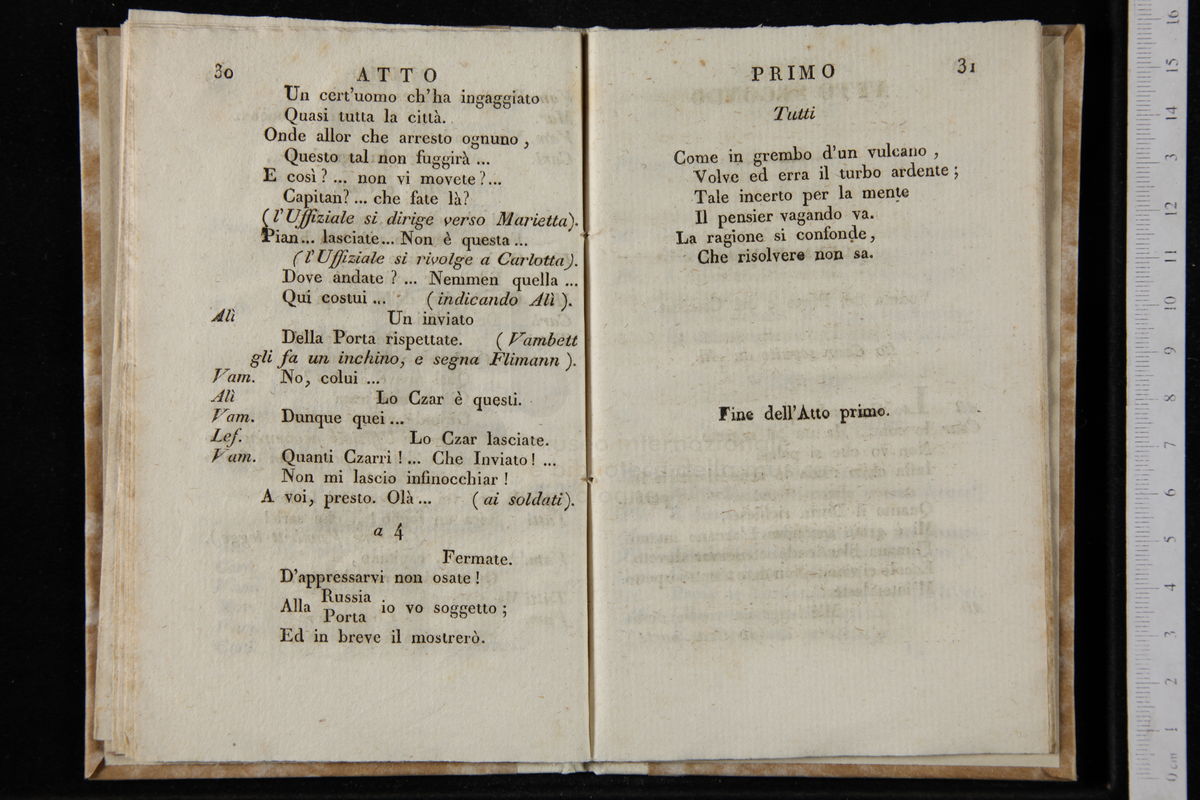 30 ATTO
Un cert'uomo ch'ha ingaggiato
Quasi tutta la città.
Onde allor che arresto ognuno,
Questo tal non fuggirà ...
E così? ... non vi movete? ...
Capitan? ... che fate là?
(l'Uffiziale si dirige verso Marietta).
Pian... lasciate... Non è questa ...
(l'Uffiziale si rivolge a Carlotta).
Dove andate? ... Nemmen quella ...
Qui costui ... (indicando Alì).
Alì Un inviato
Della Porta rispettate. (Vambett
gli fa un inchino, e segna Flimann).
Vam. No, colui ...
Alì Lo Czar è questi.
Vam. Dunque quei ...
Lef. Lo Czar lasciate.
Vam. Quanti Czarri! ... Che Inviato! ...
Non mi lascio infinocchiar!
A voi, presto. Olà ... (ai soldati).
a 4
Fermate.
D'appressarvi non osate!
Alla Russia io vo soggetto;
Porta
Ed in breve il mostrerò.
PRIMO 31
Tutti
Come in grembo d'un vulcano,
Volve ed erra il turbo ardente;
Tale incerto per la mente
Il pensier vagando va.
La ragione si confonde,
Che risolvere non sa.
Fine dell'Atto primo.
0 cm 1 2 3 4 5 6 7 8 9 10 11 12 13 14 15 16